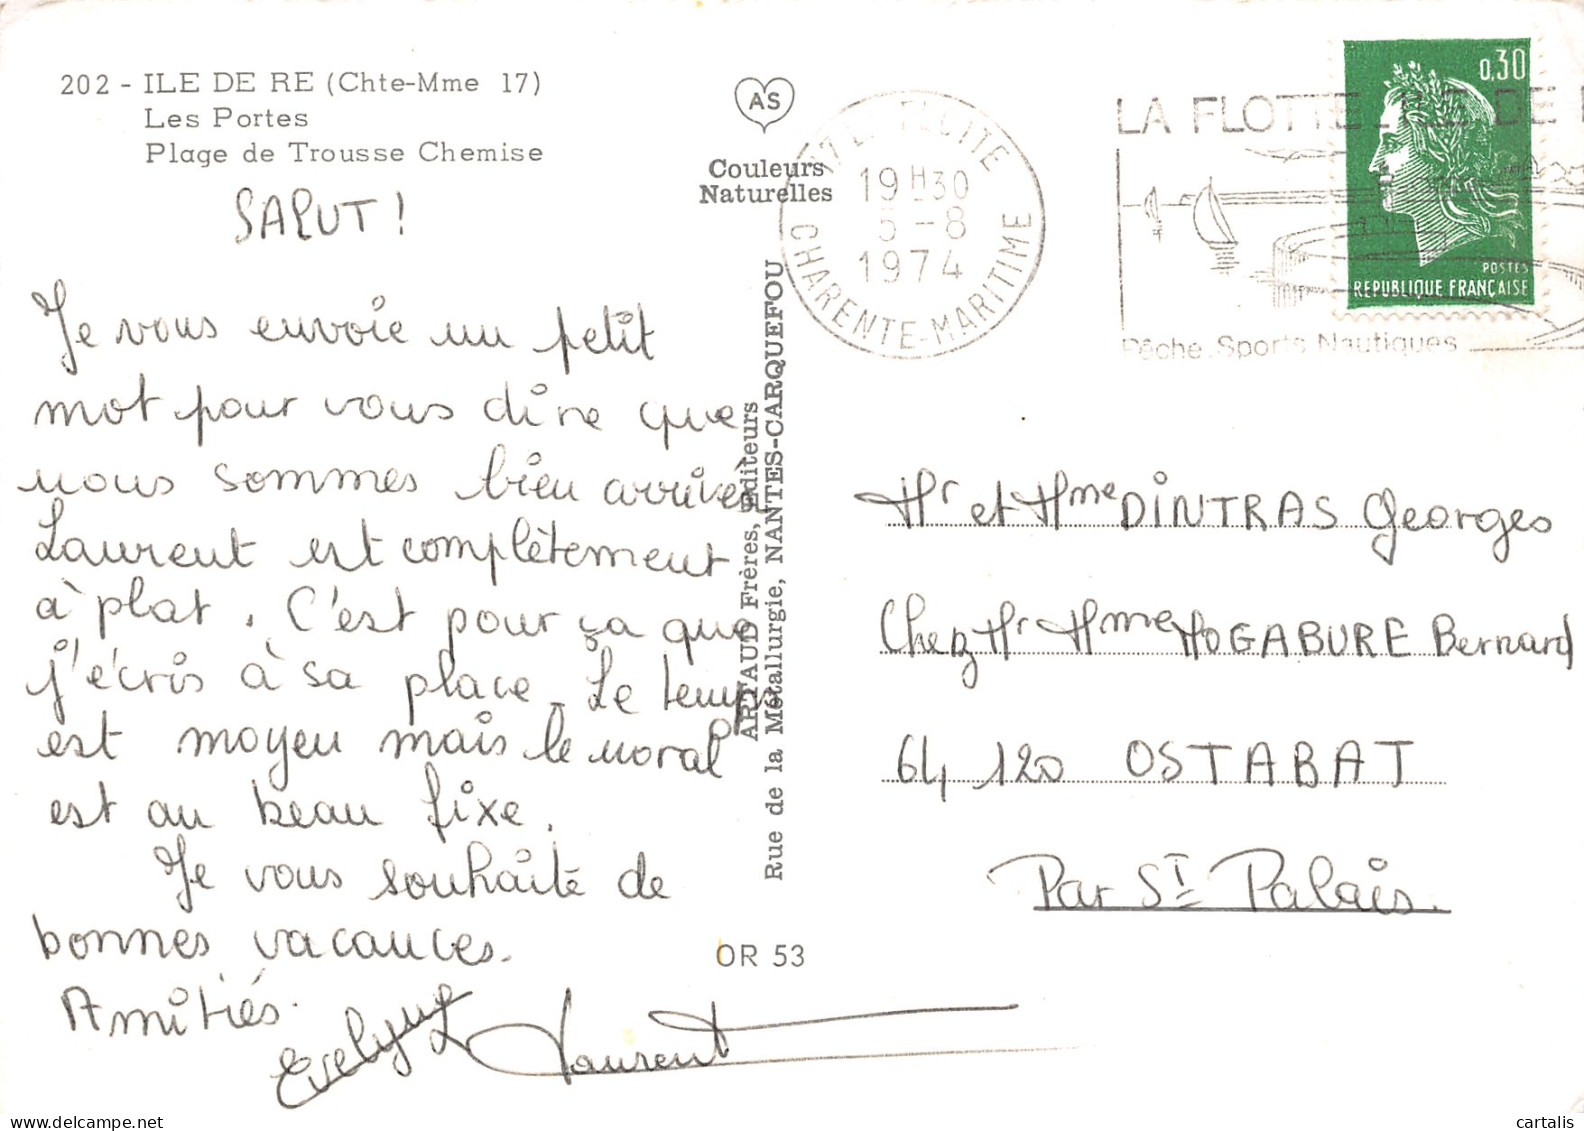 202 - ILE DE RE (Chte-Mme 17)
Les Portes
Plage de Trousse Chemise
SALUT !
Je vous envoie un petit
mot pour vous dire que
nous sommes bien arrivés
Laurent est complètement
à plat. C'est pour ça que
j'écris à sa place. Le temps
est moyen mais le moral
est au beau fixe.
Je vous souhaite de
bonnes vacances.
Amitiés.
Evelyne Laurent
AS
Couleurs
Naturelles
ARTAUD Frères, Editeurs
Rue de la Métallurgie, NANTES-CARQUEFOU
OR 53
19 H30
5 -8
1974
CHARENTE-MARITIME
LA FLOTTE DE
Pêche Sports Nautiques
0,30
POSTES
REPUBLIQUE FRANÇAISE
Mr et Mme DINTRAS Georges
Chez Mr Mme MOGABURE Bernard
64 120 OSTABAT
Par St Palais.
delcampe.net
cartalis